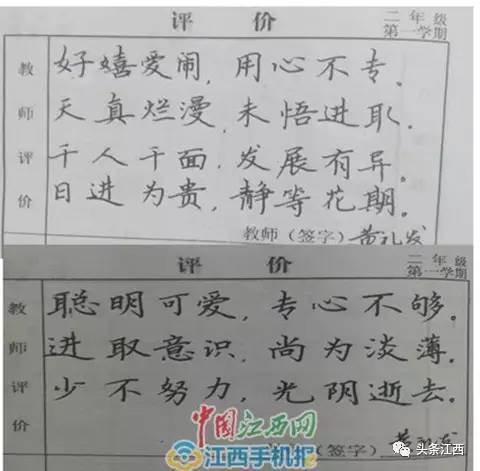 评 价
二年级
第一学期
教师评价
好嬉爱闹，用心不专。
天真烂漫，未悟进取。
千人千面，发展有异。
日进为贵，静等花期。
教师（签字）黄礼发
评 价
二年级
第一学期
教师评价
聪明可爱，专心不够。
进取意识，尚为淡薄。
少不努力，光阴逝去。
（签字）
中国江西网
江西手机报
头条江西